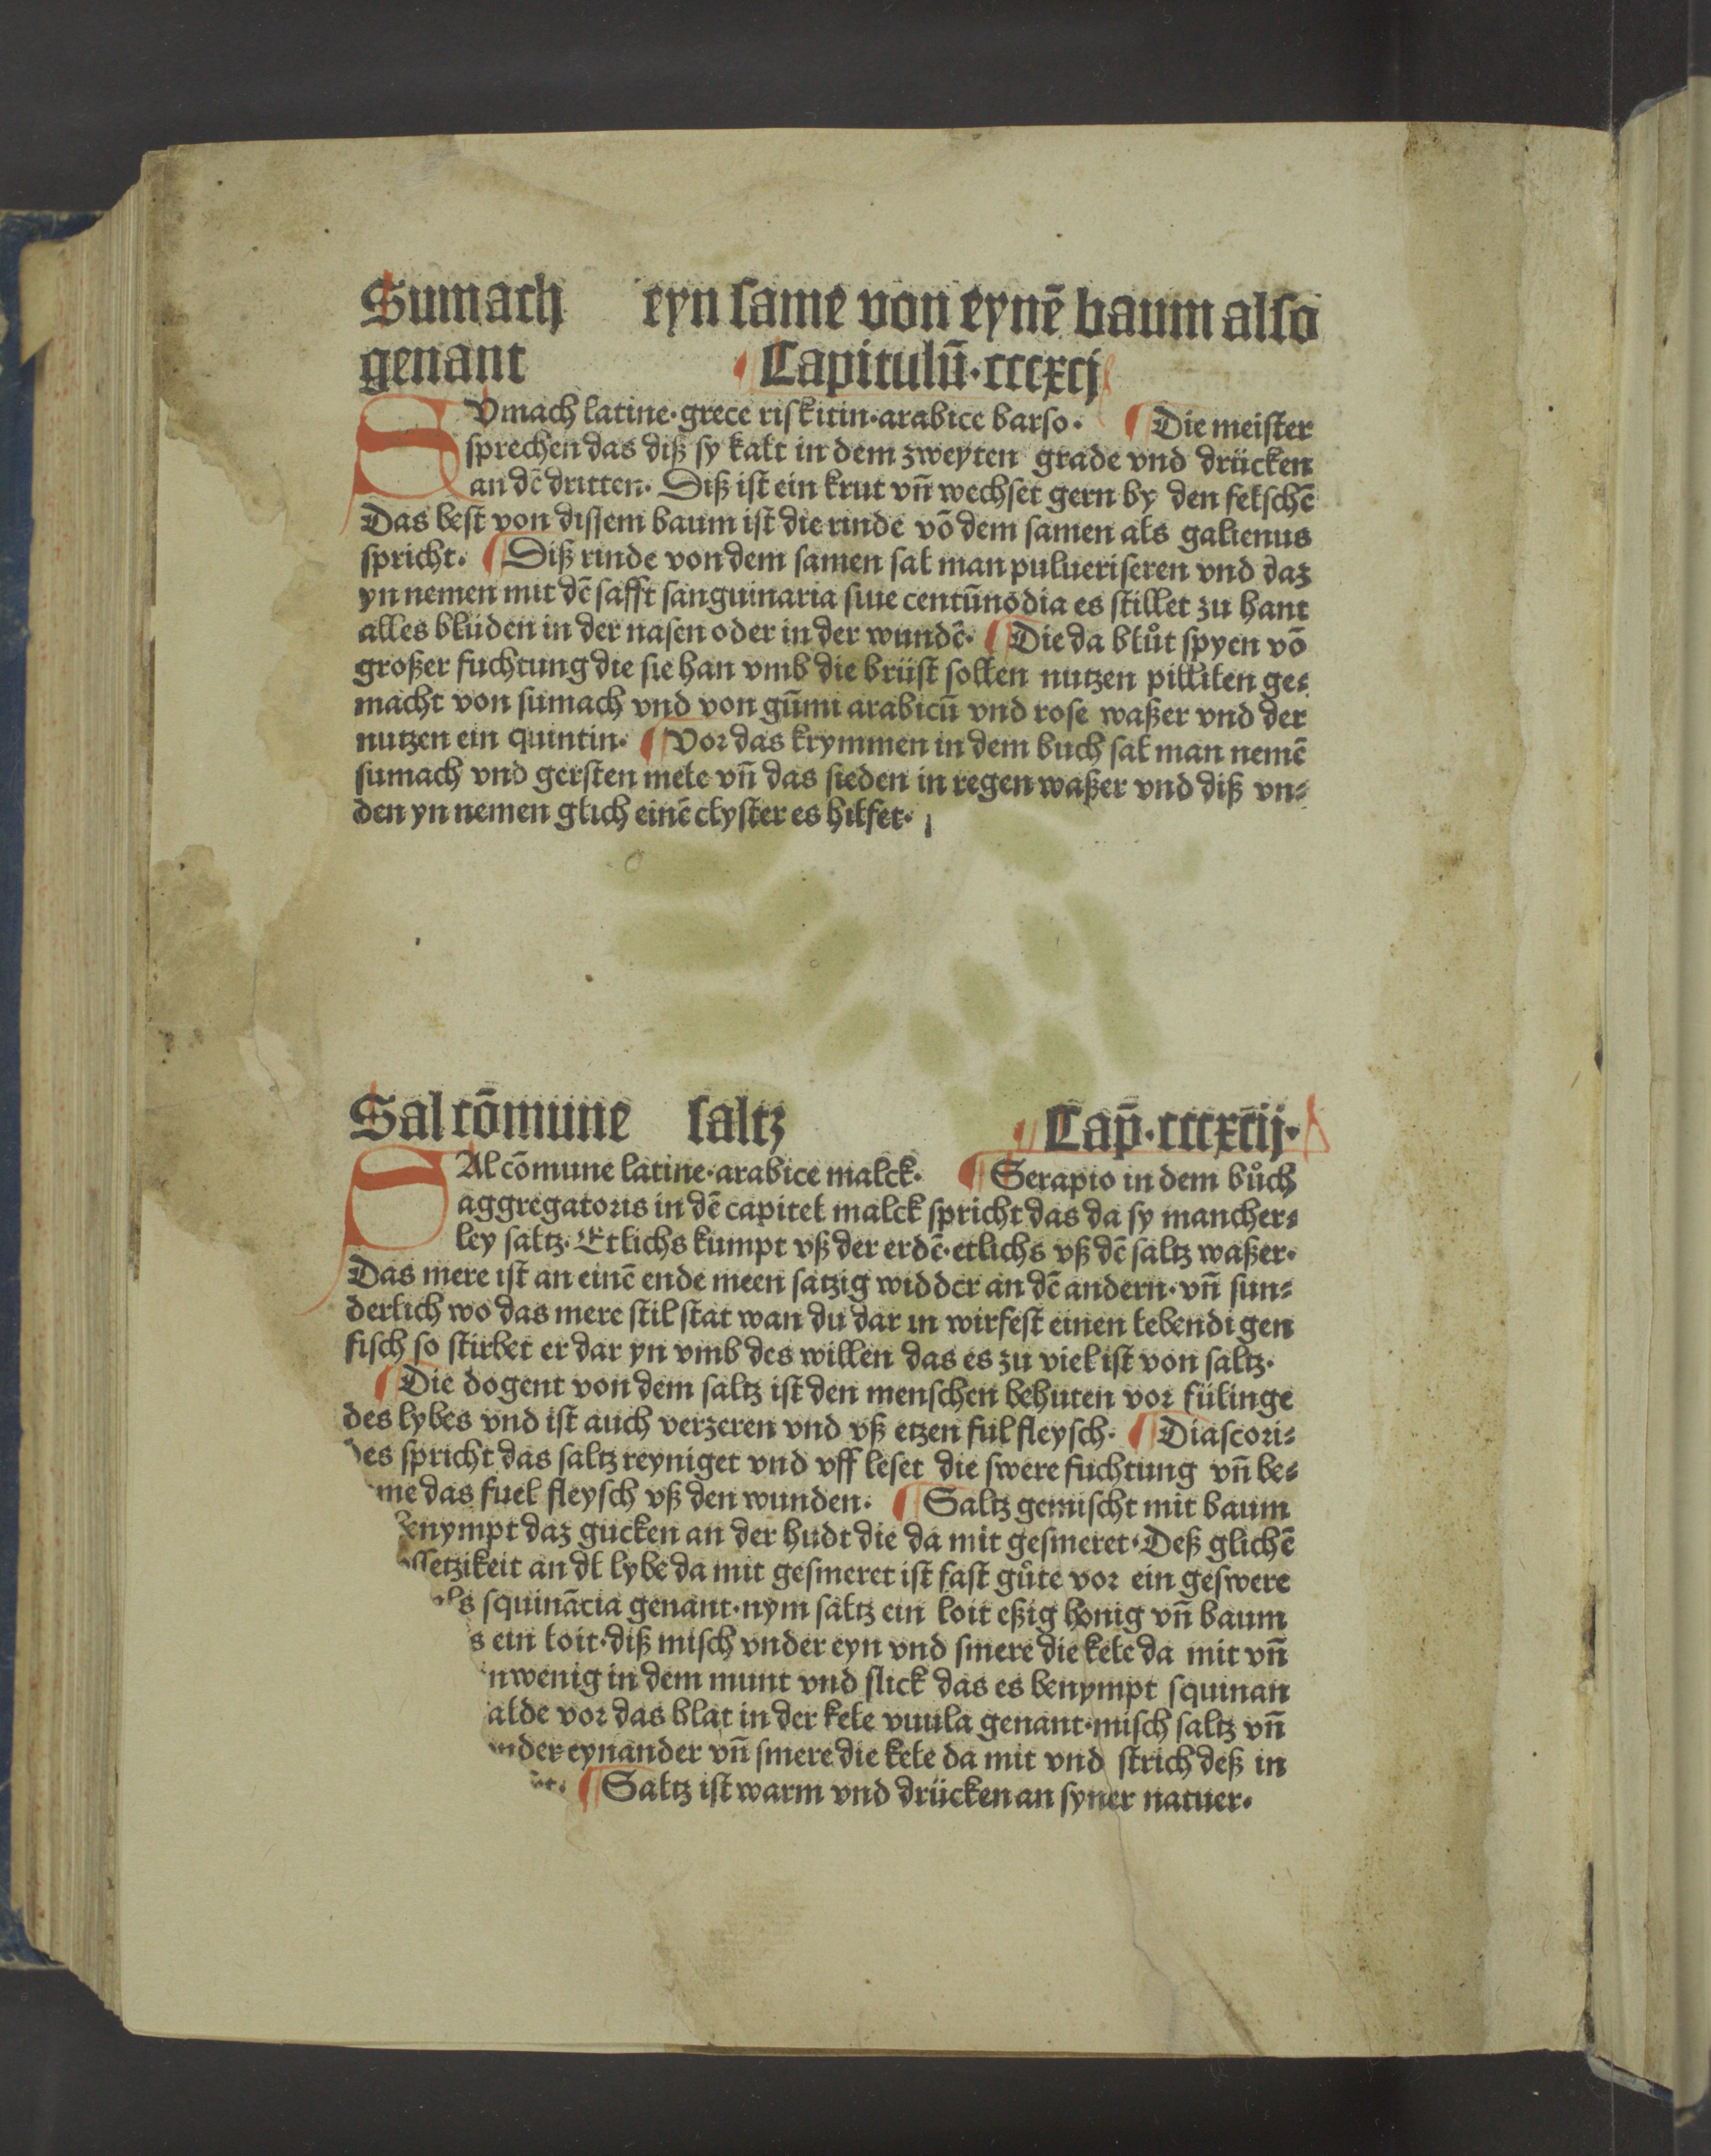 Sumach eyn same von eynē baum also
genant Capitulū·cccxcj
SVmach latine·grece riskitin·arabice barso· Die meister
sprechen das diß sy kalt in dem zweyten grade vnd drücken
an dē dritten· Diß ist ein krut vn̄ wechset gern by den felschē
Das best von dissem baum ist die rinde vō dem samen als galienus
spricht. Diß rinde von dem samen sal man pulueriseren vnd daz
yn nemen mit dē safft sanguinaria siue centūnodia es stillet zu hant
alles blüden in der nasen oder in der wundē· Die da blůt spyen vō
großer fuchtung die sie han vmb die brüst sollen nutzen pillilen ge⸗
macht von sumach vnd von gūmi arabicū vnd rose waßer vnd der
nutzen ein quintin· Vor das krymmen in dem buch sal man nemē
sumach vnd gersten mele vn̄ das sieden in regen waßer vnd diß vn⸗
den yn nemen glich einē clyster es hilfet·
Sal cōmune saltz Cap̄·cccxcij·
SAl cōmune latine·arabice malck· Serapio in dem bůch
aggregatoris in dē capitel malck spricht das da sy mancher⸗
ley saltz· Etlichs kumpt vß der erdē·etlichs vß dē saltz waßer·
Das mere ist an einē ende meen satzig widder an dē andern·vn̄ sun⸗
derlich wo das mere stil stat wan du dar in wirfest einen lebendigen
fisch so stirbet er dar yn vmb des willen das es zu viel ist von saltz·
Die dogent von dem saltz ist den menschen behuten vor fülinge
des lybes vnd ist auch verzeren vnd vß etzen ful fleysch· Diascori⸗
des spricht das saltz reyniget vnd vff leset die swere fuchtung vn̄ be⸗
me das fuel fleysch vß den wunden· Saltz gemischt mit baum
enympt daz gucken an der hudt die da mit gesmeret·Deß glichē
ssetzikeit an dl lybe da mit gesmeret ist fast gůte vor ein geswere
als squinācia genant·nym saltz ein loit eßig honig vn̄ baum
s ein loit·diß misch vnder eyn vnd smere die kele da mit vn̄
nwenig in dem munt vnd slick das es benympt squinan
alde vor das blat in der kele vuula genant·misch saltz vn̄
nder eynander vn̄ smere die kele da mit vnd strich deß in
Saltz ist warm vnd drücken an syner natuer·